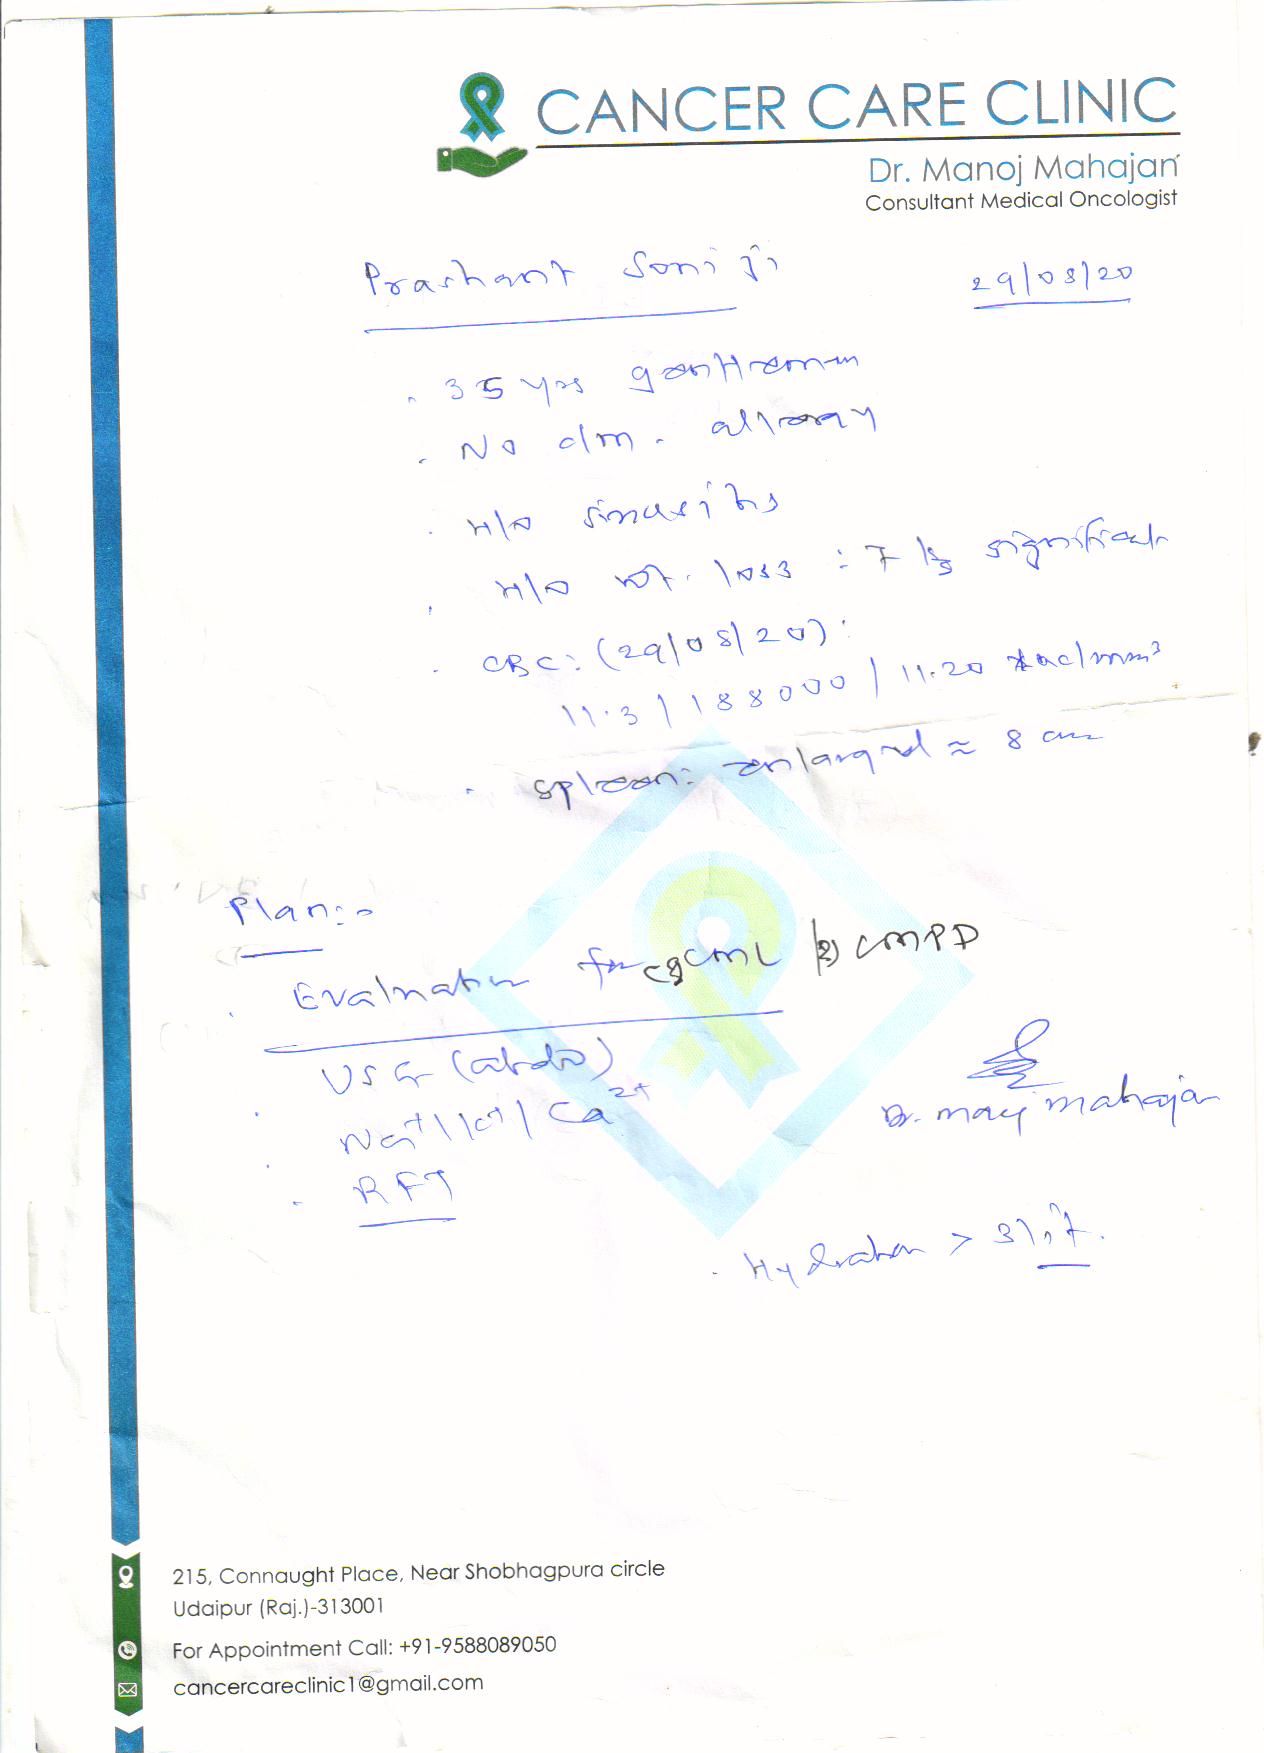 CANCER CARE CLINIC
Dr. Manoj Mahajan
Consultant Medical Oncologist
Prashant Soni ji
29/08/20
35 yrs gentleman
No dm. allergy
H/o sinusitis
H/o wt. loss : 7 kg significant
CBC: (29/08/20):
11.3 / 188000 / 11.20 lac/mm3
Spleen: enlarged ≈ 8 cm
Plan:-
Evaluation for CML CMPD
USG (abdo)
Na+/K+/Ca2+
RFT
Dr. Manoj Mahajan
Hydration > 3 lit.
215, Connaught Place, Near Shobhagpura circle
Udaipur (Raj.)-313001
For Appointment Call: +91-9588089050
cancercareclinic1@gmail.com